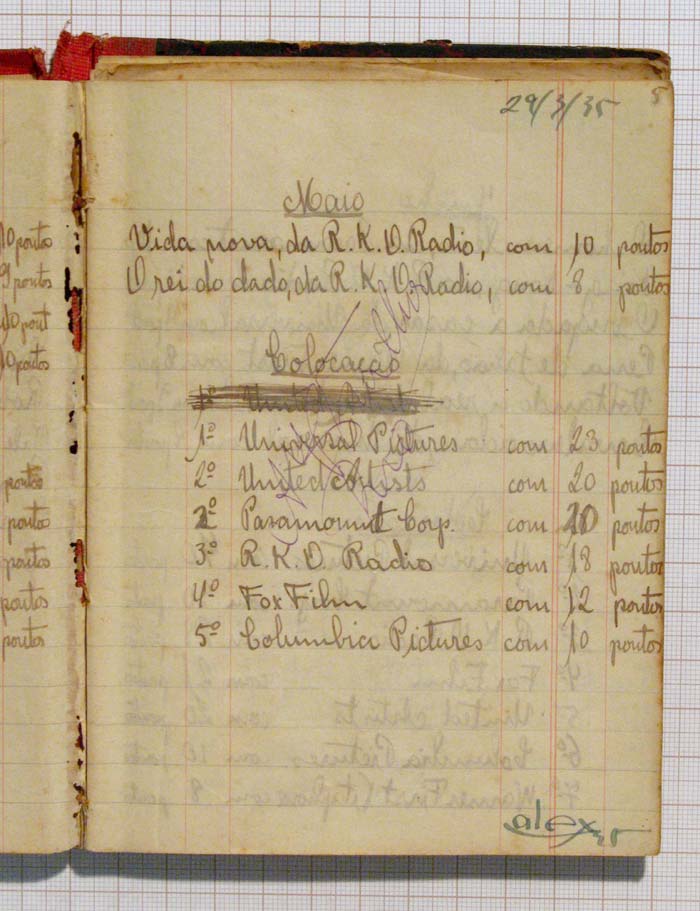 29/3/35
5
Maio
Vida nova, da R. K. O. Radio, com 10 pontos
O rei do dado, da R. K. O. Radio, com 8 pontos
Colocação
1º United Artists
1º Universal Pictures com 23 pontos
2º United Artists com 20 pontos
2º Paramount Corp. com 20 pontos
3º R. K. O. Radio com 18 pontos
4º Fox Film com 12 pontos
5º Columbia Pictures com 10 pontos
alex
10 pontos
9 pontos
10 pont
10 pontos
pontos
pontos
pontos
pontos
pontos